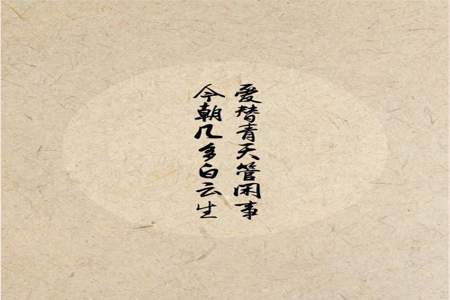 爱替青天管闲事
今朝几多白云生